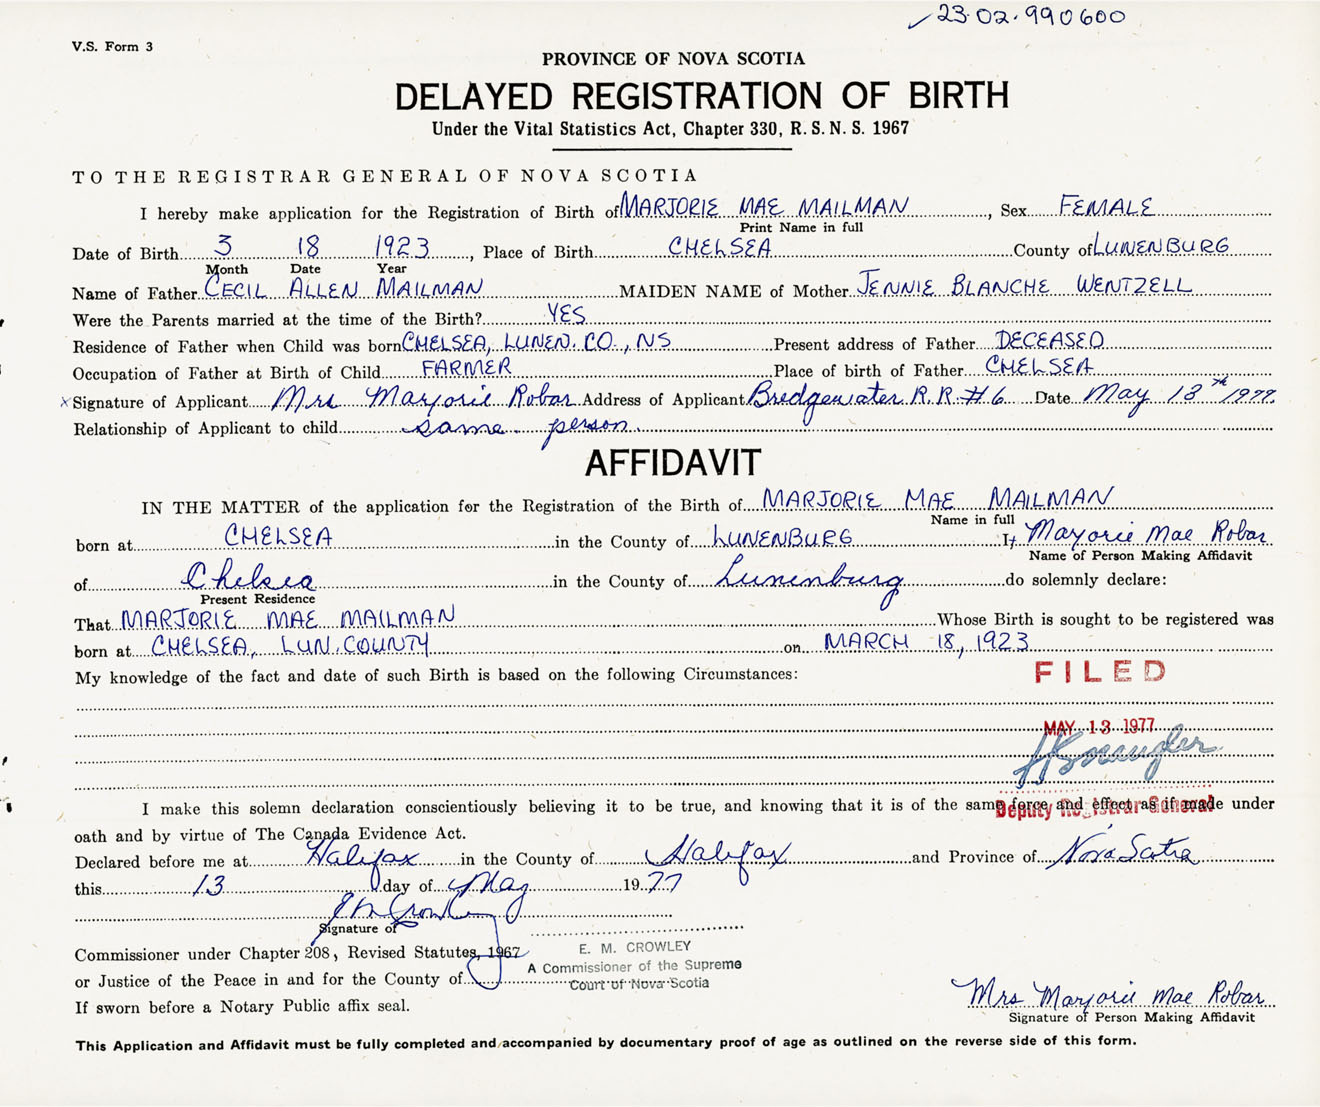 23·02·990600
V.S. Form 3
PROVINCE OF NOVA SCOTIA
DELAYED REGISTRATION OF BIRTH
Under the Vital Statistics Act, Chapter 330, R.S.N.S. 1967
TO THE REGISTRAR GENERAL OF NOVA SCOTIA
I hereby make application for the Registration of Birth of MARJORIE MAE MAILMAN, Sex FEMALE
Print Name in full
Date of Birth 3 18 1923, Place of Birth CHELSEA County of LUNENBURG
Month Date Year
Name of Father CECIL ALLEN MAILMAN MAIDEN NAME of Mother JENNIE BLANCHE WENTZELL
Were the Parents married at the time of the Birth? YES
Residence of Father when Child was born CHELSEA, LUNEN. CO., NS Present address of Father DECEASED
Occupation of Father at Birth of Child FARMER Place of birth of Father CHELSEA
x Signature of Applicant Mrs Marjorie Robar Address of Applicant Bridgewater R.R. #6 Date May 13th 1977.
Relationship of Applicant to child same person.
AFFIDAVIT
IN THE MATTER of the application for the Registration of the Birth of MARJORIE MAE MAILMAN
Name in full
born at CHELSEA in the County of LUNENBURG I, Marjorie Mae Robar
Name of Person Making Affidavit
of Chelsea in the County of Lunenburg do solemnly declare:
Present Residence
That MARJORIE MAE MAILMAN Whose Birth is sought to be registered was
born at CHELSEA, LUN. COUNTY on MARCH 18, 1923
My knowledge of the fact and date of such Birth is based on the following Circumstances:
FILED
MAY 13 1977
Deputy Registrar General
I make this solemn declaration conscientiously believing it to be true, and knowing that it is of the same force and effect as if made under
oath and by virtue of The Canada Evidence Act.
Declared before me at Halifax in the County of Halifax and Province of Nova Scotia
this 13 day of May 1977
E M Crowley
Signature of
Commissioner under Chapter 208, Revised Statutes, 1967
or Justice of the Peace in and for the County of
If sworn before a Notary Public affix seal.
E. M. CROWLEY
A Commissioner of the Supreme
Court of Nova Scotia
Mrs Marjorie Mae Robar
Signature of Person Making Affidavit
This Application and Affidavit must be fully completed and accompanied by documentary proof of age as outlined on the reverse side of this form.